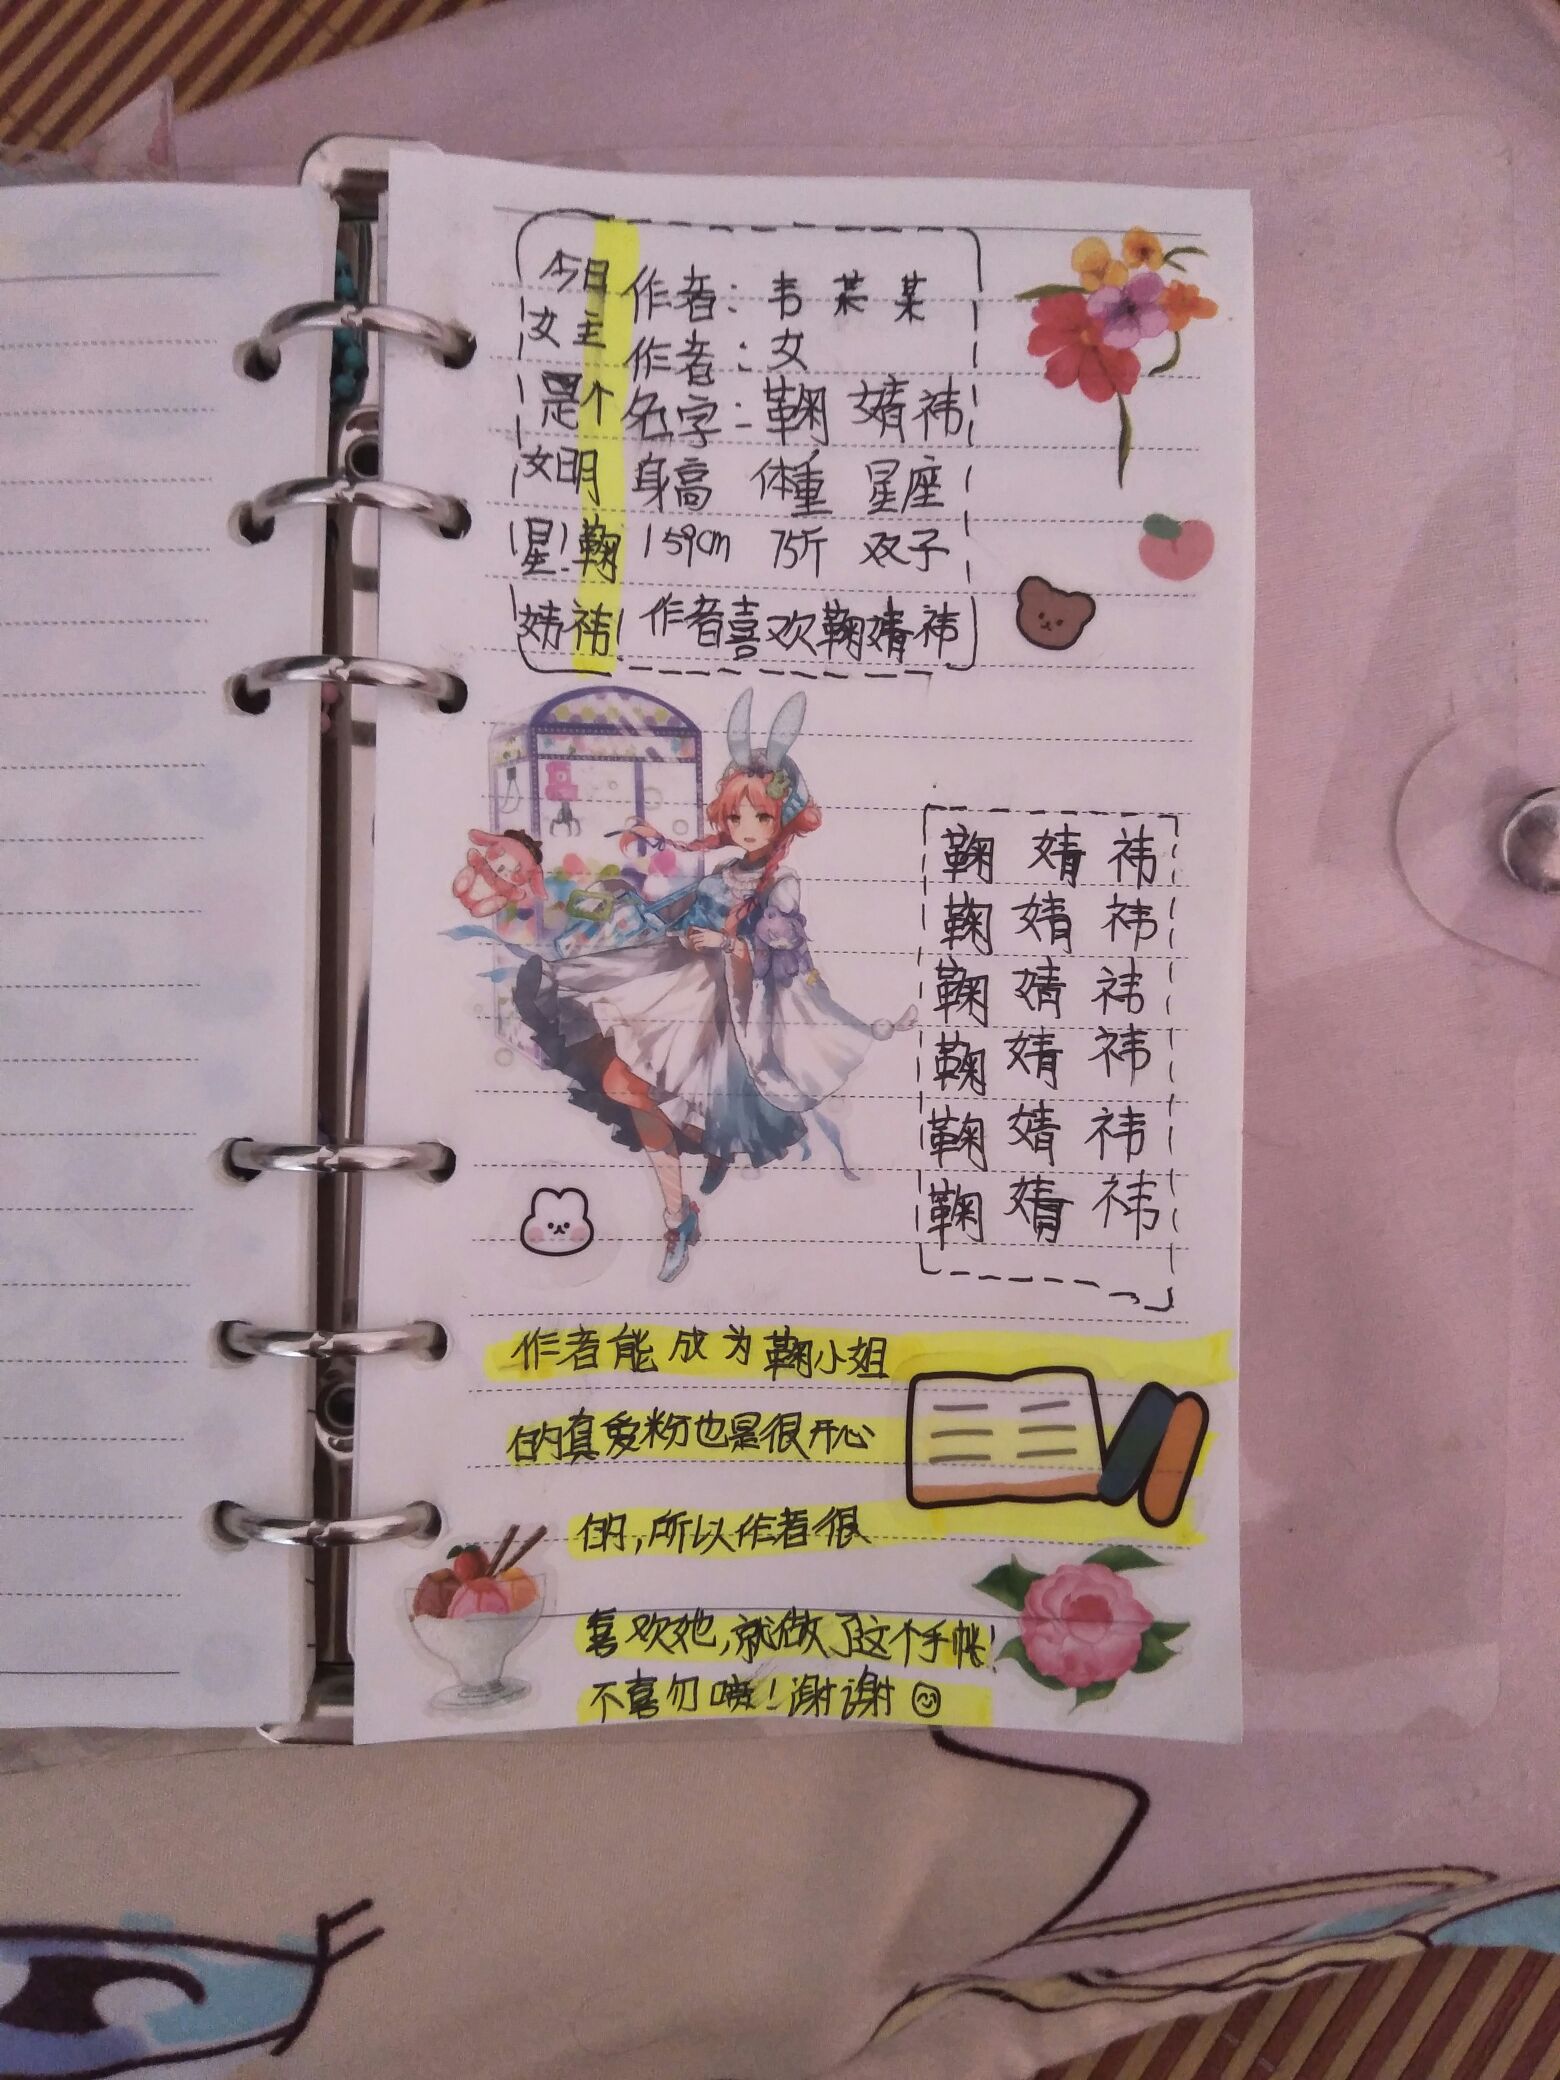 今日
女主
是个
女明
星鞠
婧祎
作者：韦某某
作者：女
名字：鞠婧祎
身高 体重 星座
159cm 75斤 双子
作者喜欢鞠婧祎
鞠婧祎
鞠婧祎
鞠婧祎
鞠婧祎
鞠婧祎
鞠婧祎
作者能成为鞠小姐
的真爱粉也是很开心
的，所以作者很
喜欢她，就做了这个手帐！
不喜勿喷！谢谢